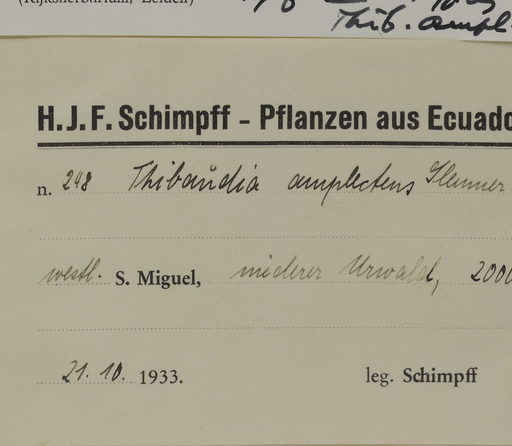 (Rijksherbarium, Leiden)
Thib. ampl.
H.J.F. Schimpff - Pflanzen aus Ecuado
n. 248 Thibaudia amplectens Sleumer
westl. S. Miguel, niederer Urwald, 2000
21. 10. 1933. leg. Schimpff